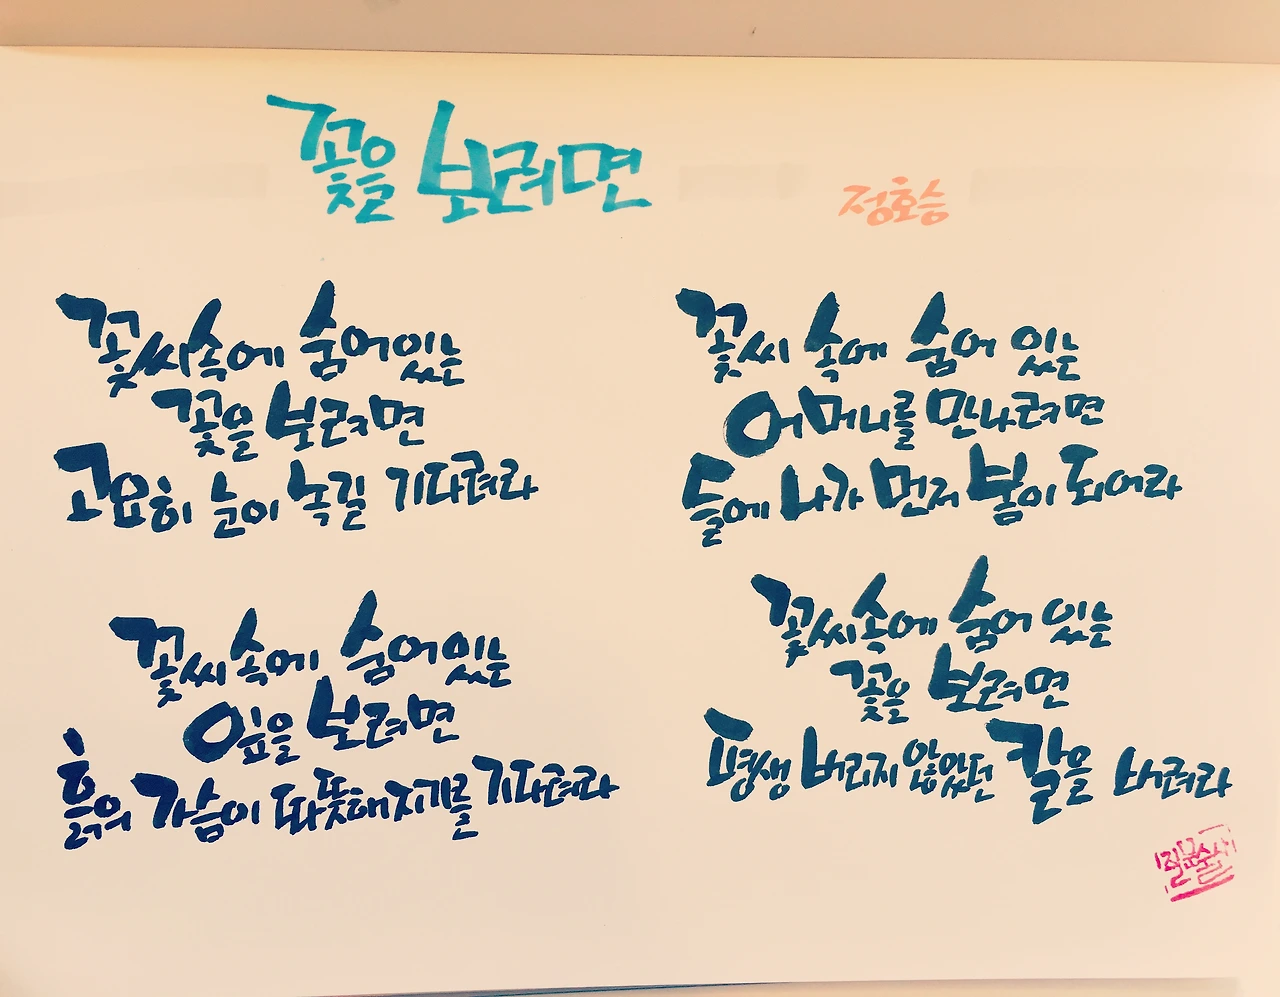 꽃을 보려면
정호승
꽃씨 속에 숨어있는
꽃을 보려면
고요히 눈이 녹길 기다려라
꽃씨 속에 숨어있는
잎을 보려면
흙의 가슴이 따뜻해지기를 기다려라
꽃씨 속에 숨어 있는
어머니를 만나려면
들에 나가 먼저 봄이 되어라
꽃씨 속에 숨어 있는
꽃을 보려면
평생 버리지 않았던 칼을 버려라